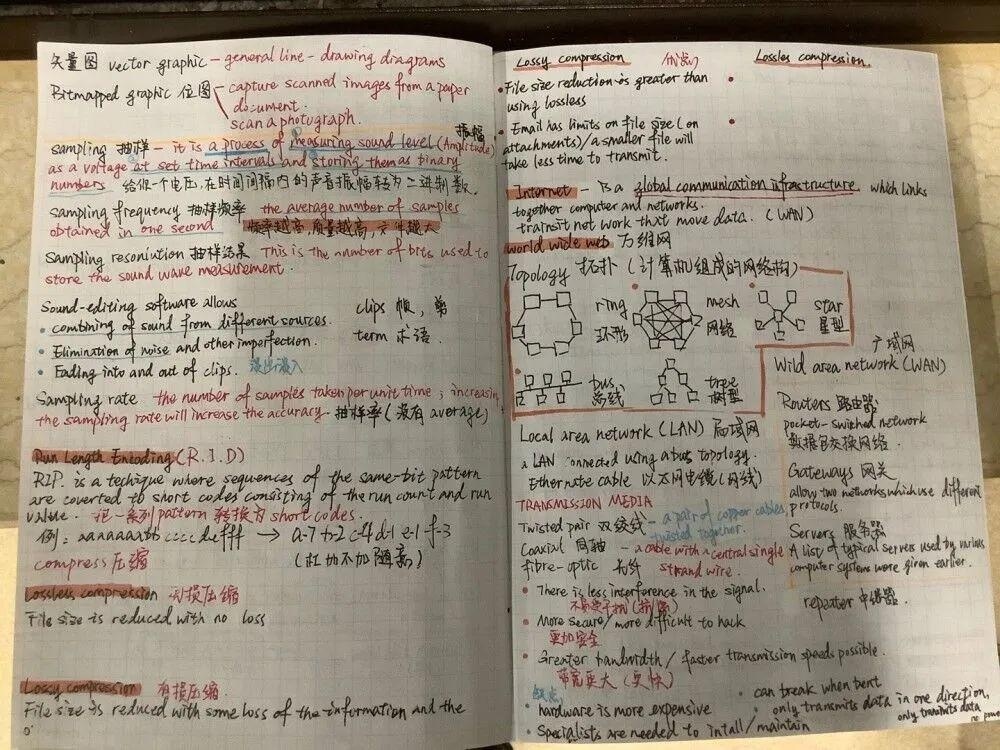 矢量图 vector graphic - general line - drawing diagrams
Bitmapped graphic 位图 - capture scanned images from a paper
document.
scan a photograph.
sampling 抽样 - it is a process of measuring sound level (Amplitude) 振幅
as a voltage at set time intervals and storing them as binary
numbers 给你一个电压,在时间间隔内的声音振幅转为二进制数.
Sampling frequency 抽样频率 the average number of samples
obtained in one second 频率越高,质量越高,文件越大
Sampling resoniution 抽样结果 This is the number of bits used to
store the sound wave measurement.
Sound-editing software allows
clips 帧,
term 术语
• combining of sound from different sources.
• Elimination of noise and other imperfection.
• Fading into and out of clips. 淡出淡入
Sampling rate the number of samples taken per unit time; increasing
the sampling rate will increase the accuracy. 抽样率(没有average)
Run Length Encoding (R.I.D)
RIP. is a techique where sequences of the same-bit pattern
are coverted to short codes consiting of the run count and run
value. 把一系列pattern 转换为 short codes.
例: → a-7 b-2 c-4 d-1 e-1 f-3
compress 压缩
Lossless compression 无损压缩
File size is reduced with no loss
Lossy compression 有损压缩.
File size is reduced with some loss of the information and the
Lossy compression
• File size reduction is greater than
using lossless
• Email has limits on file size (on
attachments) / a smaller file will
take less time to transmit.
Lossles compression.
Internet - Is a global communication infrastructure which links
together computer and networks.
transit net work that move data. (WAN)
world wide web 万维网
Topology 拓扑 (计算机组成的网络构)
ring 环形
mesh 网络
star 星型
bus 总线
tree 树型
广域网
Wild area network (WAN)
Local area network (LAN) 局域网
a LAN connected using a bus topology.
Ethernate cable 以太网电缆(网线)
TRANSMISSION MEDIA
Twisted pair 双绞线 - a pair of copper cables,
twisted together.
Coaxial 同轴 - a cable with a central single
strand wire.
fibre-optic 光纤
• There is less interference in the signal.
不易受干扰
• More secure / more difficult to hack
更加安全
• Greater bandwidth / faster transmission speeds possible.
带宽更大 (更快)
缺点:
• hardware is more expensive
• Specialists are needed to intall / maintain
• can break when bent
• only transmits data in one direction,
only transmits data
no power
Routers 路由器:
pocket-switched network
数据包交换网络.
Gateways 网关
allow two networks which use different
protocols.
Servers 服务器
A list of typical servers used by various
computer systems were given earlier.
repeater 中继器.